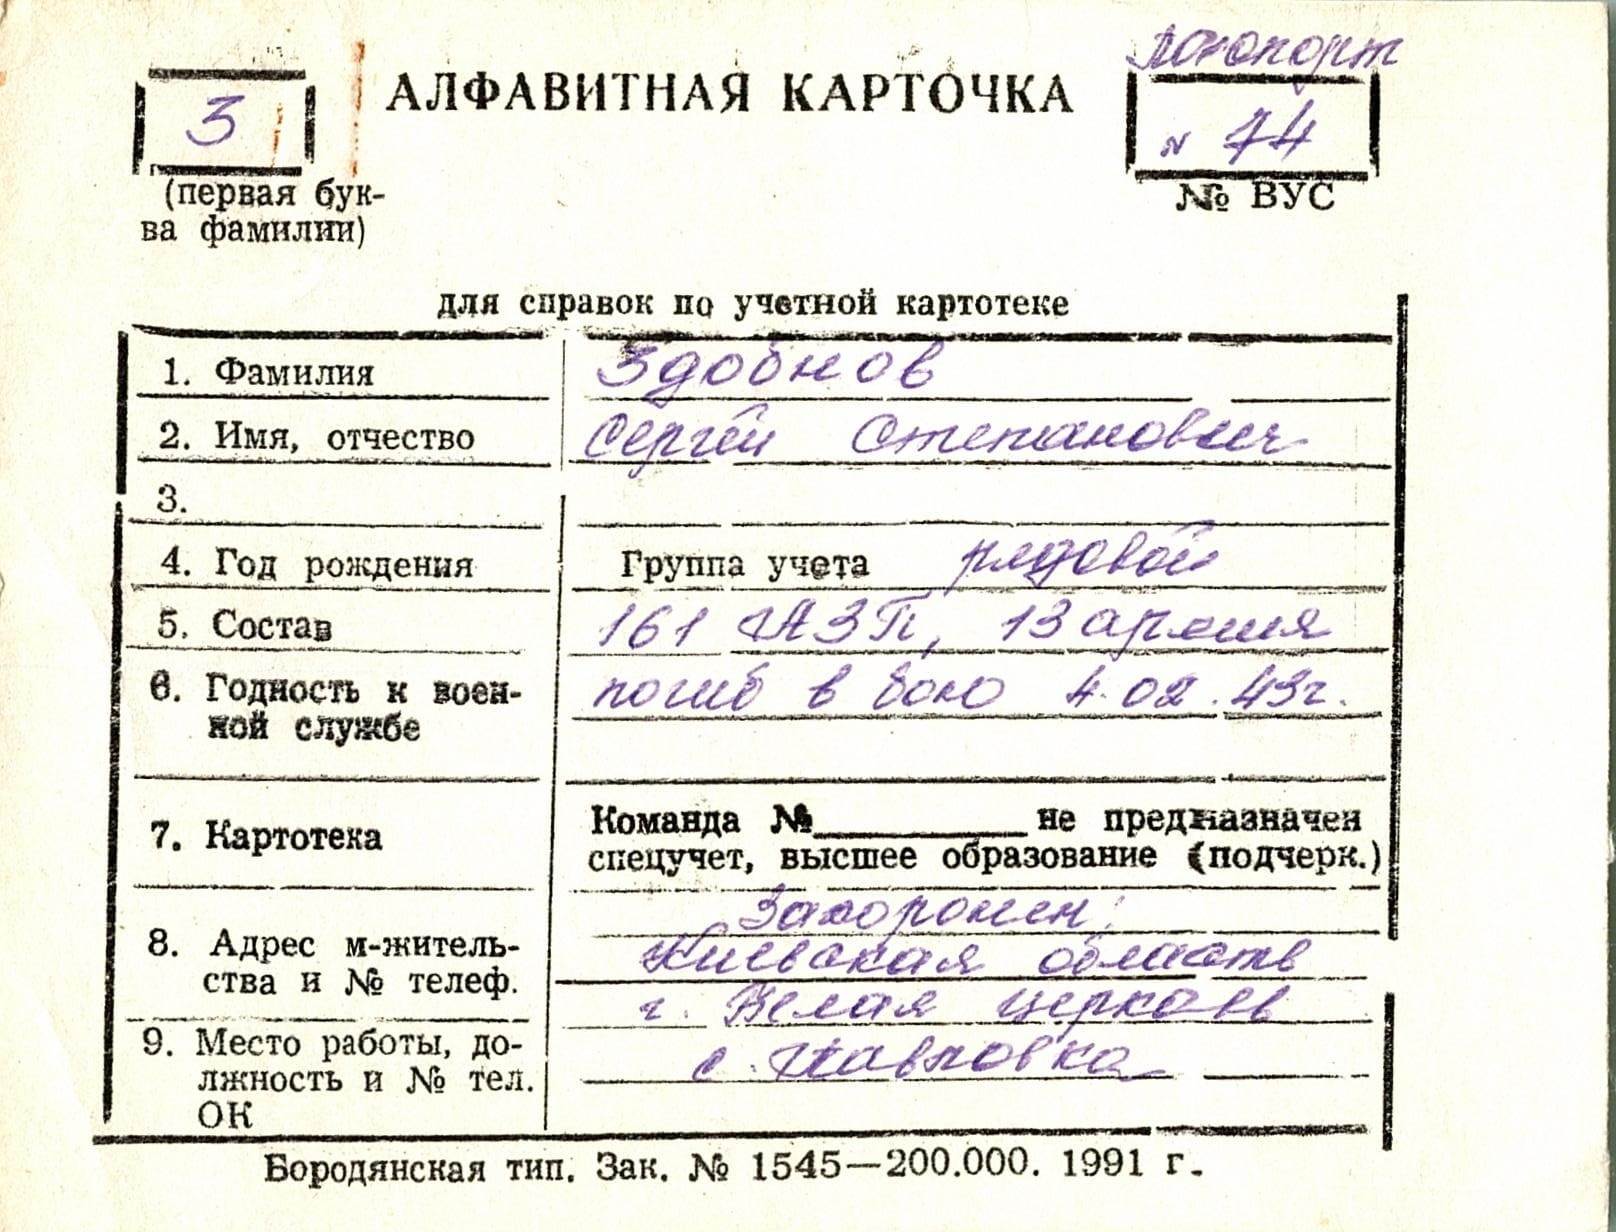 паспорт
З
№ 74
АЛФАВИТНАЯ КАРТОЧКА
(первая бук-
ва фамилии)
№ ВУС
для справок по учетной картотеке
1. Фамилия Здобнов
2. Имя, отчество Сергей Степанович
3.
4. Год рождения Группа учета рядовой
5. Состав 161 АЗП, 13 армия
6. Годность к воен- погиб в бою 4.02.43г.
ной службе
7. Картотека Команда № не предназначен
спецучет, высшее образование (подчерк.)
Захоронен:
8. Адрес м-житель- Киевская область
ства и № телеф. г. Белая церковь
9. Место работы, до- с. Павловка
лжность и № тел.
ОК
Бородянская тип. Зак. № 1545—200.000. 1991 г.